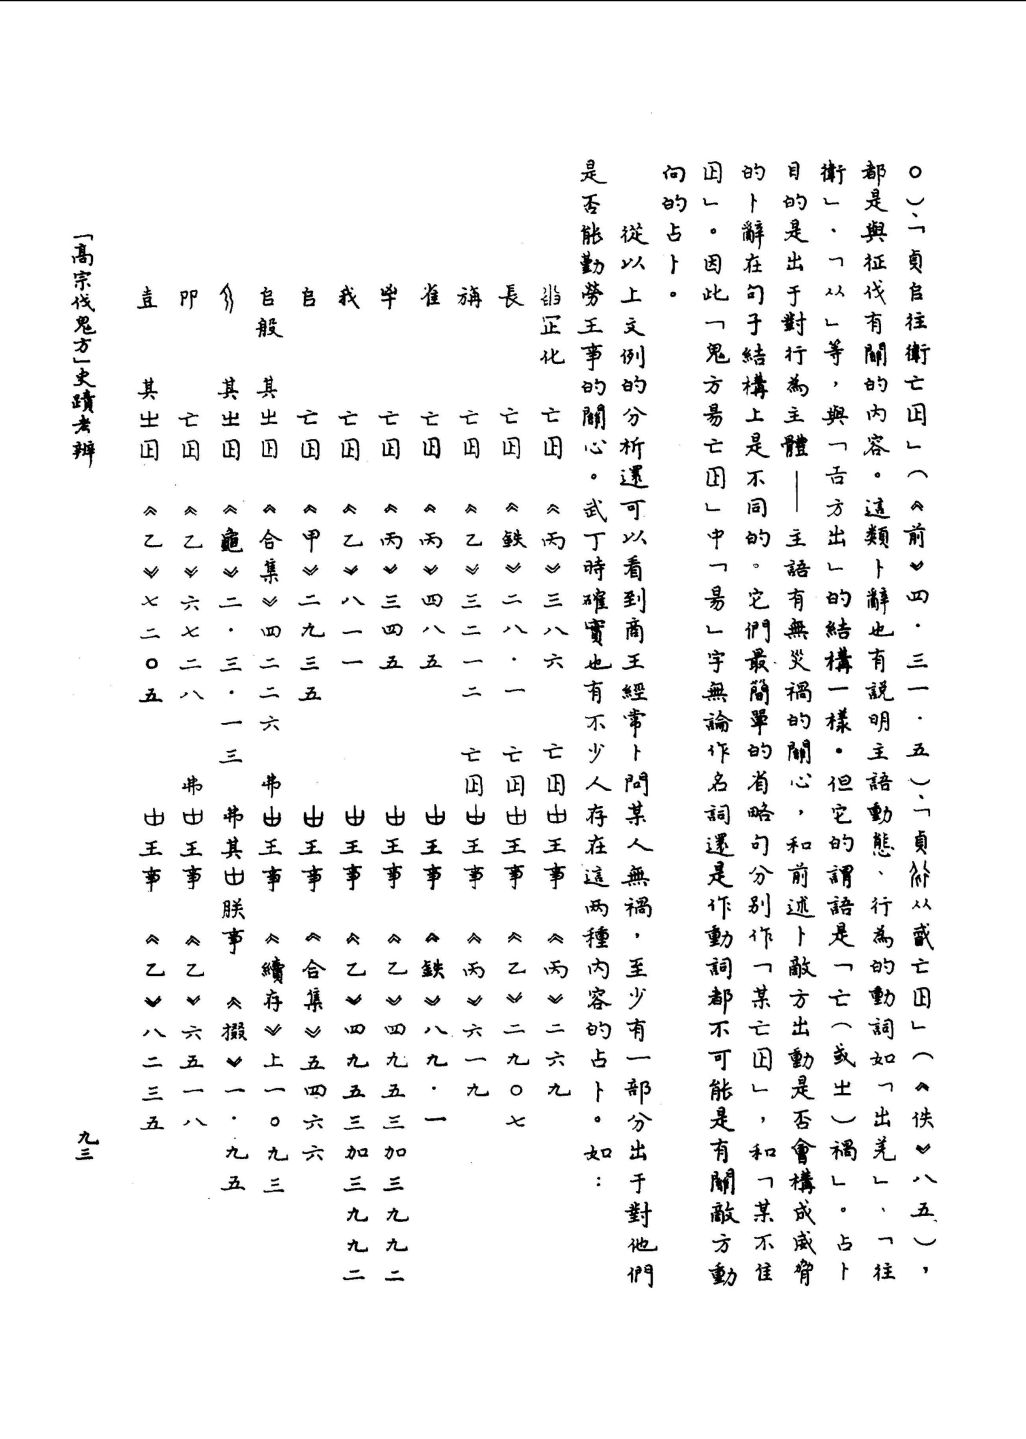 〇）、「貞𠂤往衛亡囚」（《前》四·三一·五）、「貞从㦰亡囚」（《佚》八五），
都是與征伐有關的內容。這類卜辭也有説明主語動態、行為的動詞如「出羌」、「往
衛」·「从」等，與「𢀛方出」的結構一樣。但它的謂語是「亡（或㞢）禍」。占卜
目的是出于對行為主體——主語有無災禍的關心，和前述卜敵方出動是否會構成威脅
的卜辭在句子結構上是不同的。它們最簡單的省略句分別作「某亡囚」，和「某不隹
囚」。因此「鬼方昜亡囚」中「昜」字無論作名詞還是作動詞都不可能是有關敵方動
向的占卜。
從以上文例的分析還可以看到商王經常卜問某人無禍，至少有一部分出于對他們
是否能勤勞王事的關心。武丁時確實也有不少人存在這两種內容的占卜。如：
𢀛正化 亡囚 《丙》三八六 亡囚甾王事 《丙》二六九
長 亡囚 《鉄》二八·一 亡囚甾王事 《乙》二九〇七
旃 亡囚 《乙》三二一二 亡囚甾王事 《丙》六一九
雀 亡囚 《丙》四八五 甾王事 《鉄》八九·一
𠦒 亡囚 《丙》三四五 甾王事 《乙》四九五三加三九九二
我 亡囚 《乙》八一一 甾王事 《乙》四九五三加三九九二
𠂤 亡囚 《甲》二九三五 甾王事 《合集》五四六六
𠂤般 其㞢囚 《合集》四二二六 弗甾王事 《續存》上一〇九三
其㞢囚 《龜》二·三·一三 弗其甾朕事 《掇》一·九五
卬 亡囚 《乙》六七二八 弗甾王事 《乙》六五一八
壴 其㞢囚 《乙》七二〇五 甾王事 《乙》八二三五
「高宗伐鬼方」史蹟考辨
九三